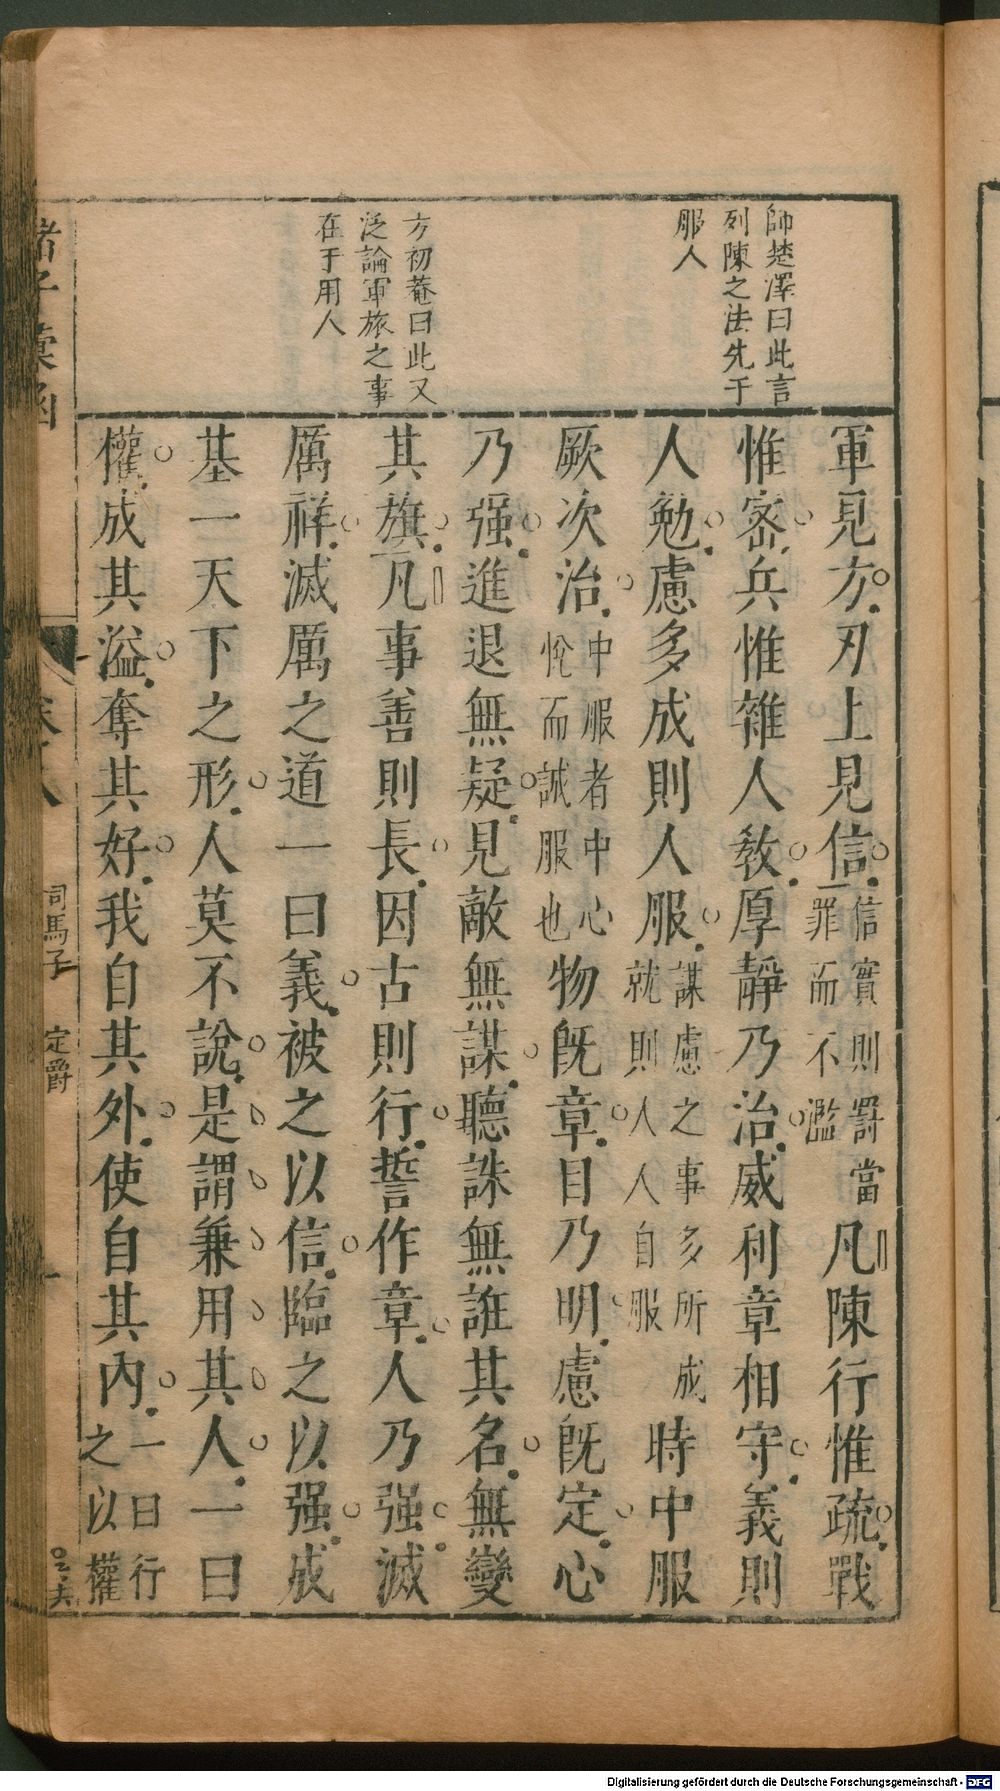 師楚澤曰此言
列陳之法先于
服人
方初菴曰此又
泛論軍旅之事
在于用人
軍見方刃上見信信實則罰當罪而不濫凡陳行惟疏戰
惟密兵惟雜人教厚靜乃治威利章相守義則
人勉慮多成則人服謀慮之事多所成就則人人自服時中服
厥次治中服者中心悅而誠服也物旣章目乃明慮旣定心
乃强進退無疑見敵無謀聽誅無誑其名無變
其旗凡事善則長因古則行誓作章人乃强滅
厲祥滅厲之道一曰義被之以信臨之以强成
基一天下之形人莫不說是謂兼用其人一曰
權成其溢奪其好我自其外使自其內一曰行之以權
諸子彙函
司馬子 定爵
Digitalisierung gefördert durch die Deutsche Forschungsgemeinschaft - DFG